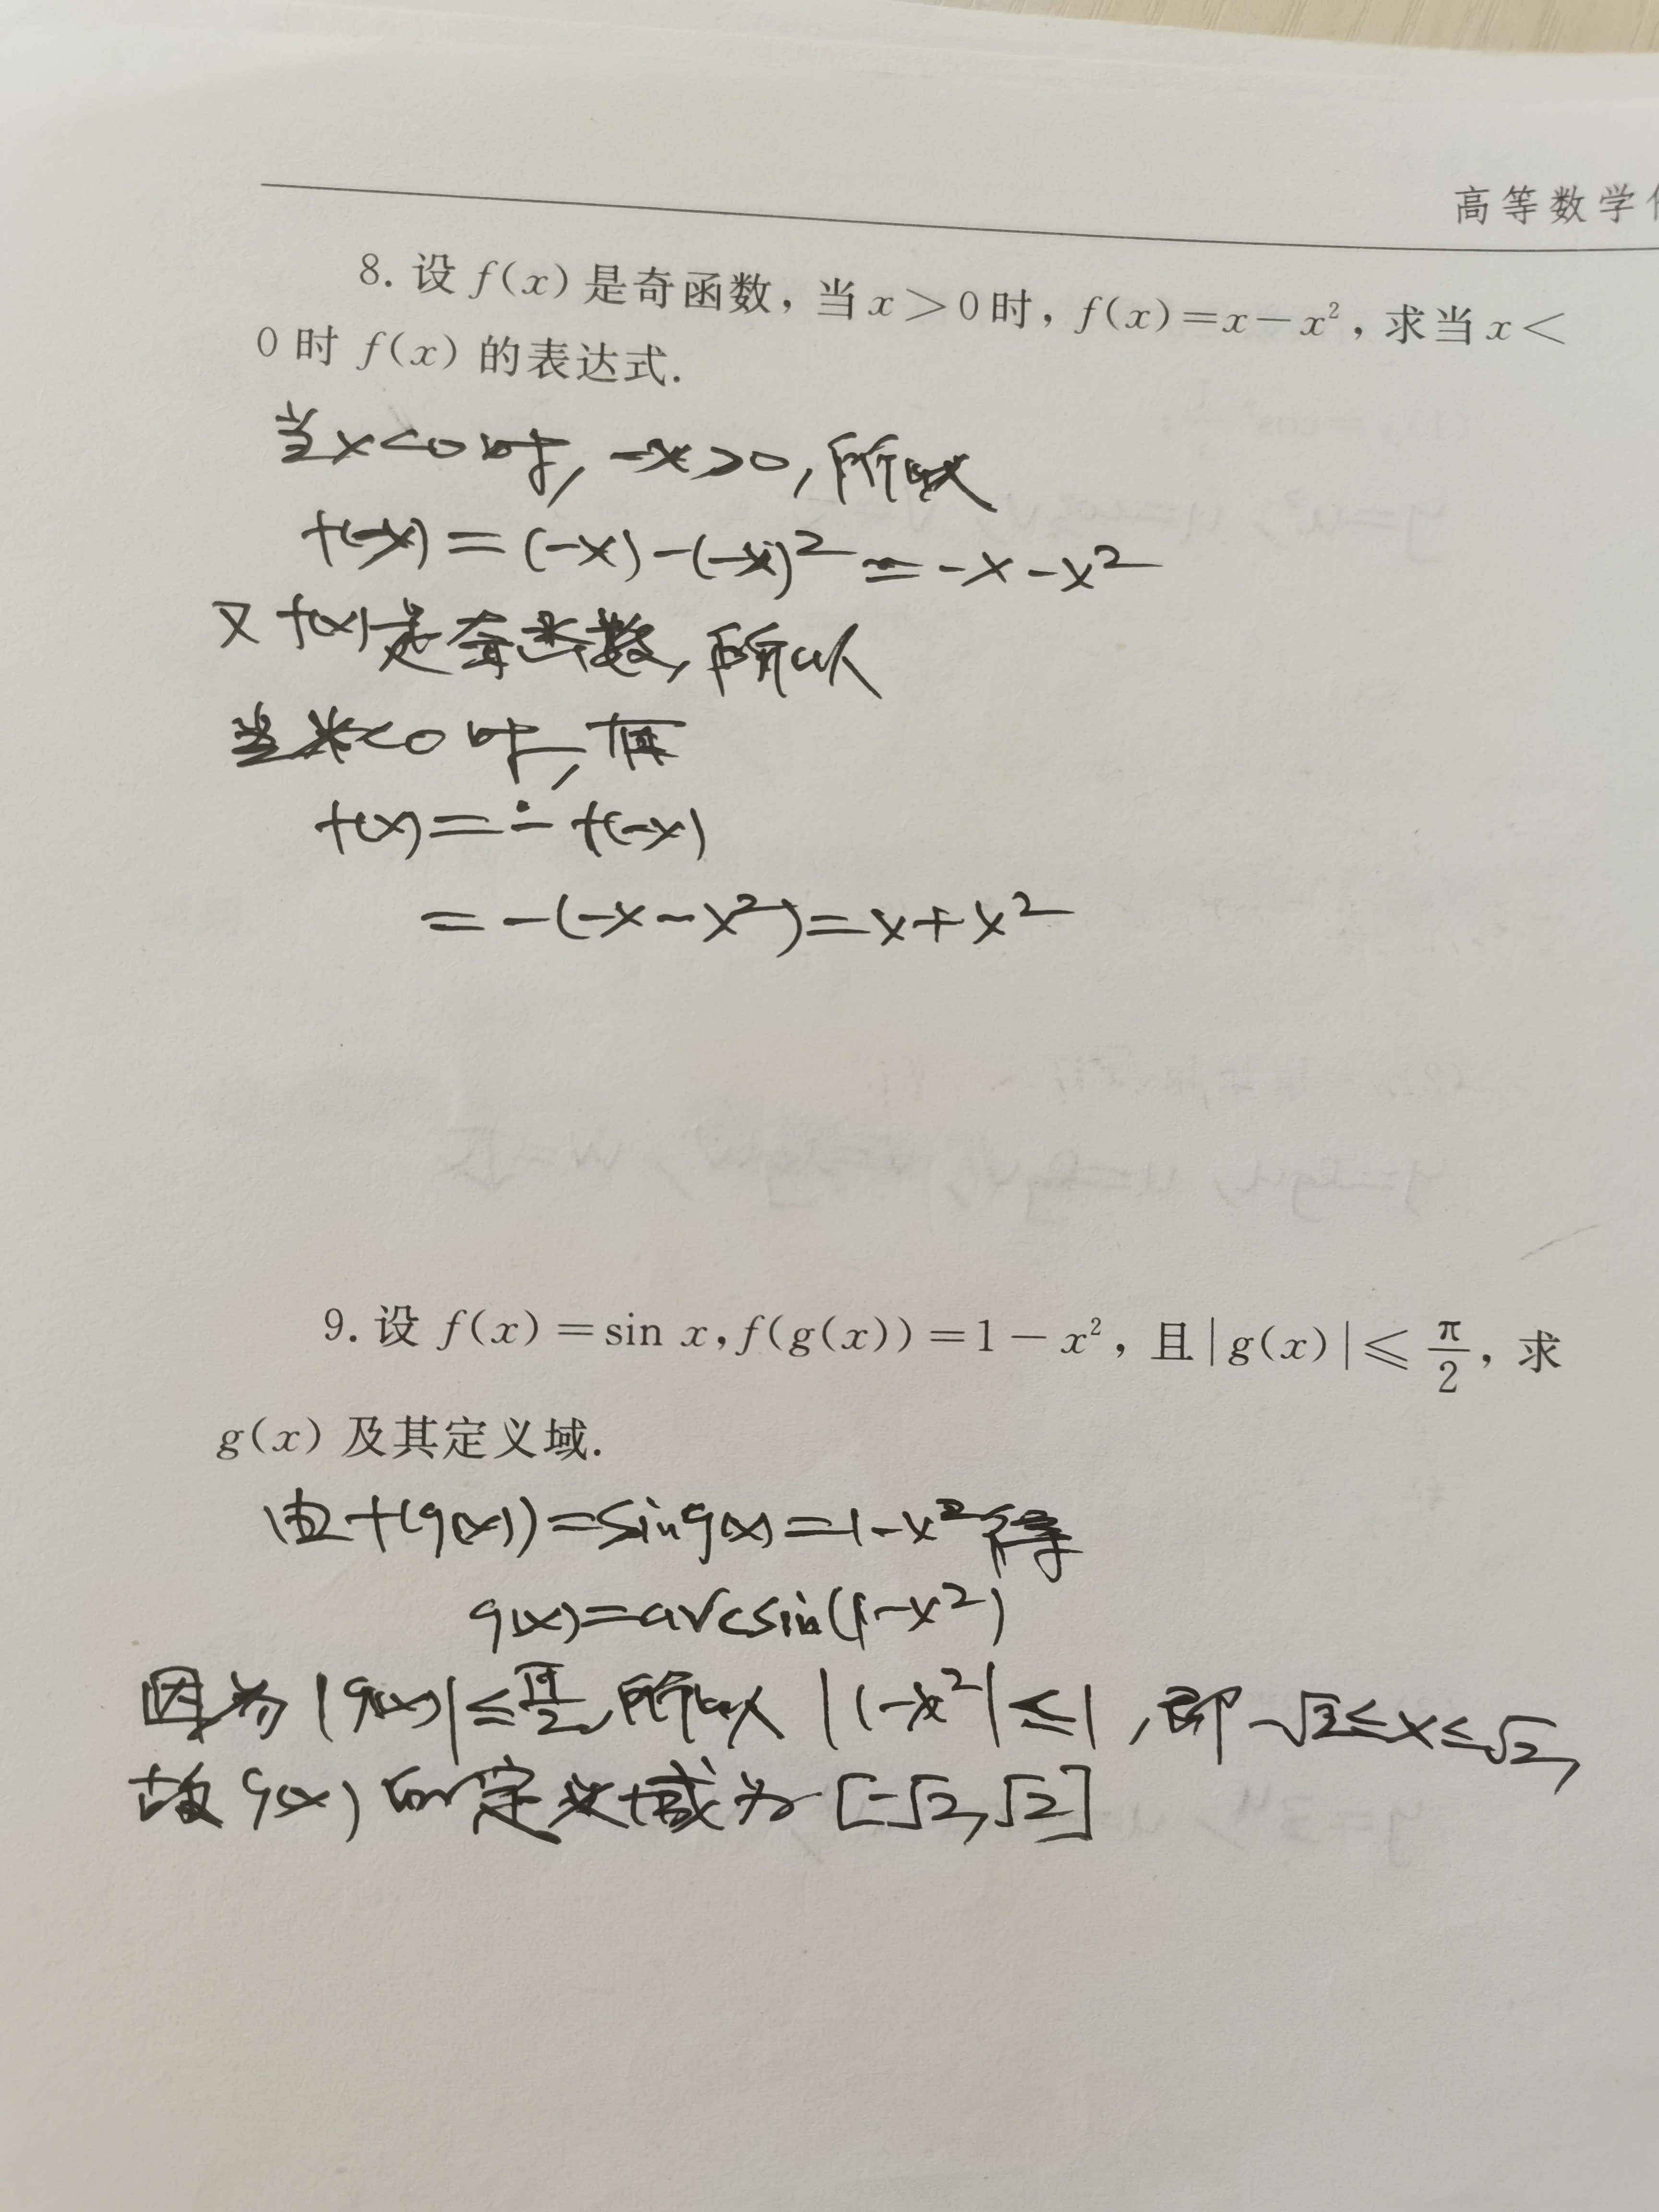 高等数学作
8. 设 f(x) 是奇函数, 当 x＞0 时, f(x)=x−x², 求当 x＜
0 时 f(x) 的表达式.
当x<0时, -x>0, 所以
f(-x) = (-x) - (-x)² = -x - x²
又 f(x) 是奇函数, 所以
当x<0时, 有
f(x) = - f(-x)
= -(-x - x²) = x + x²
9. 设 f(x)=sin x, f(g(x))=1−x², 且|g(x)|⩽π/2, 求
g(x) 及其定义域.
由 f(g(x)) = sin g(x) = 1-x² 得
g(x) = arcsin(1-x²)
因为 |g(x)| ≤ π/2, 所以 |1-x²| ≤ 1, 即 -√2 ≤ x ≤ √2,
故 g(x) 的定义域为 [-√2, √2]